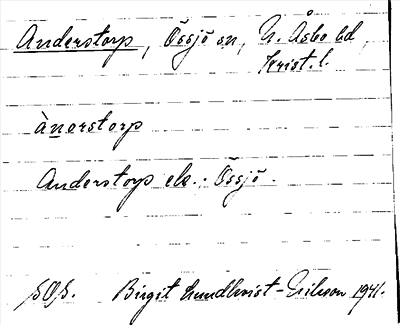 Anderstorp, Össjö sn, N. Åsbo hd,
Krist. l.
ànerstorp
Anderstorps
Össjö.
Birgit Lundkvist-Eriksson 1941.